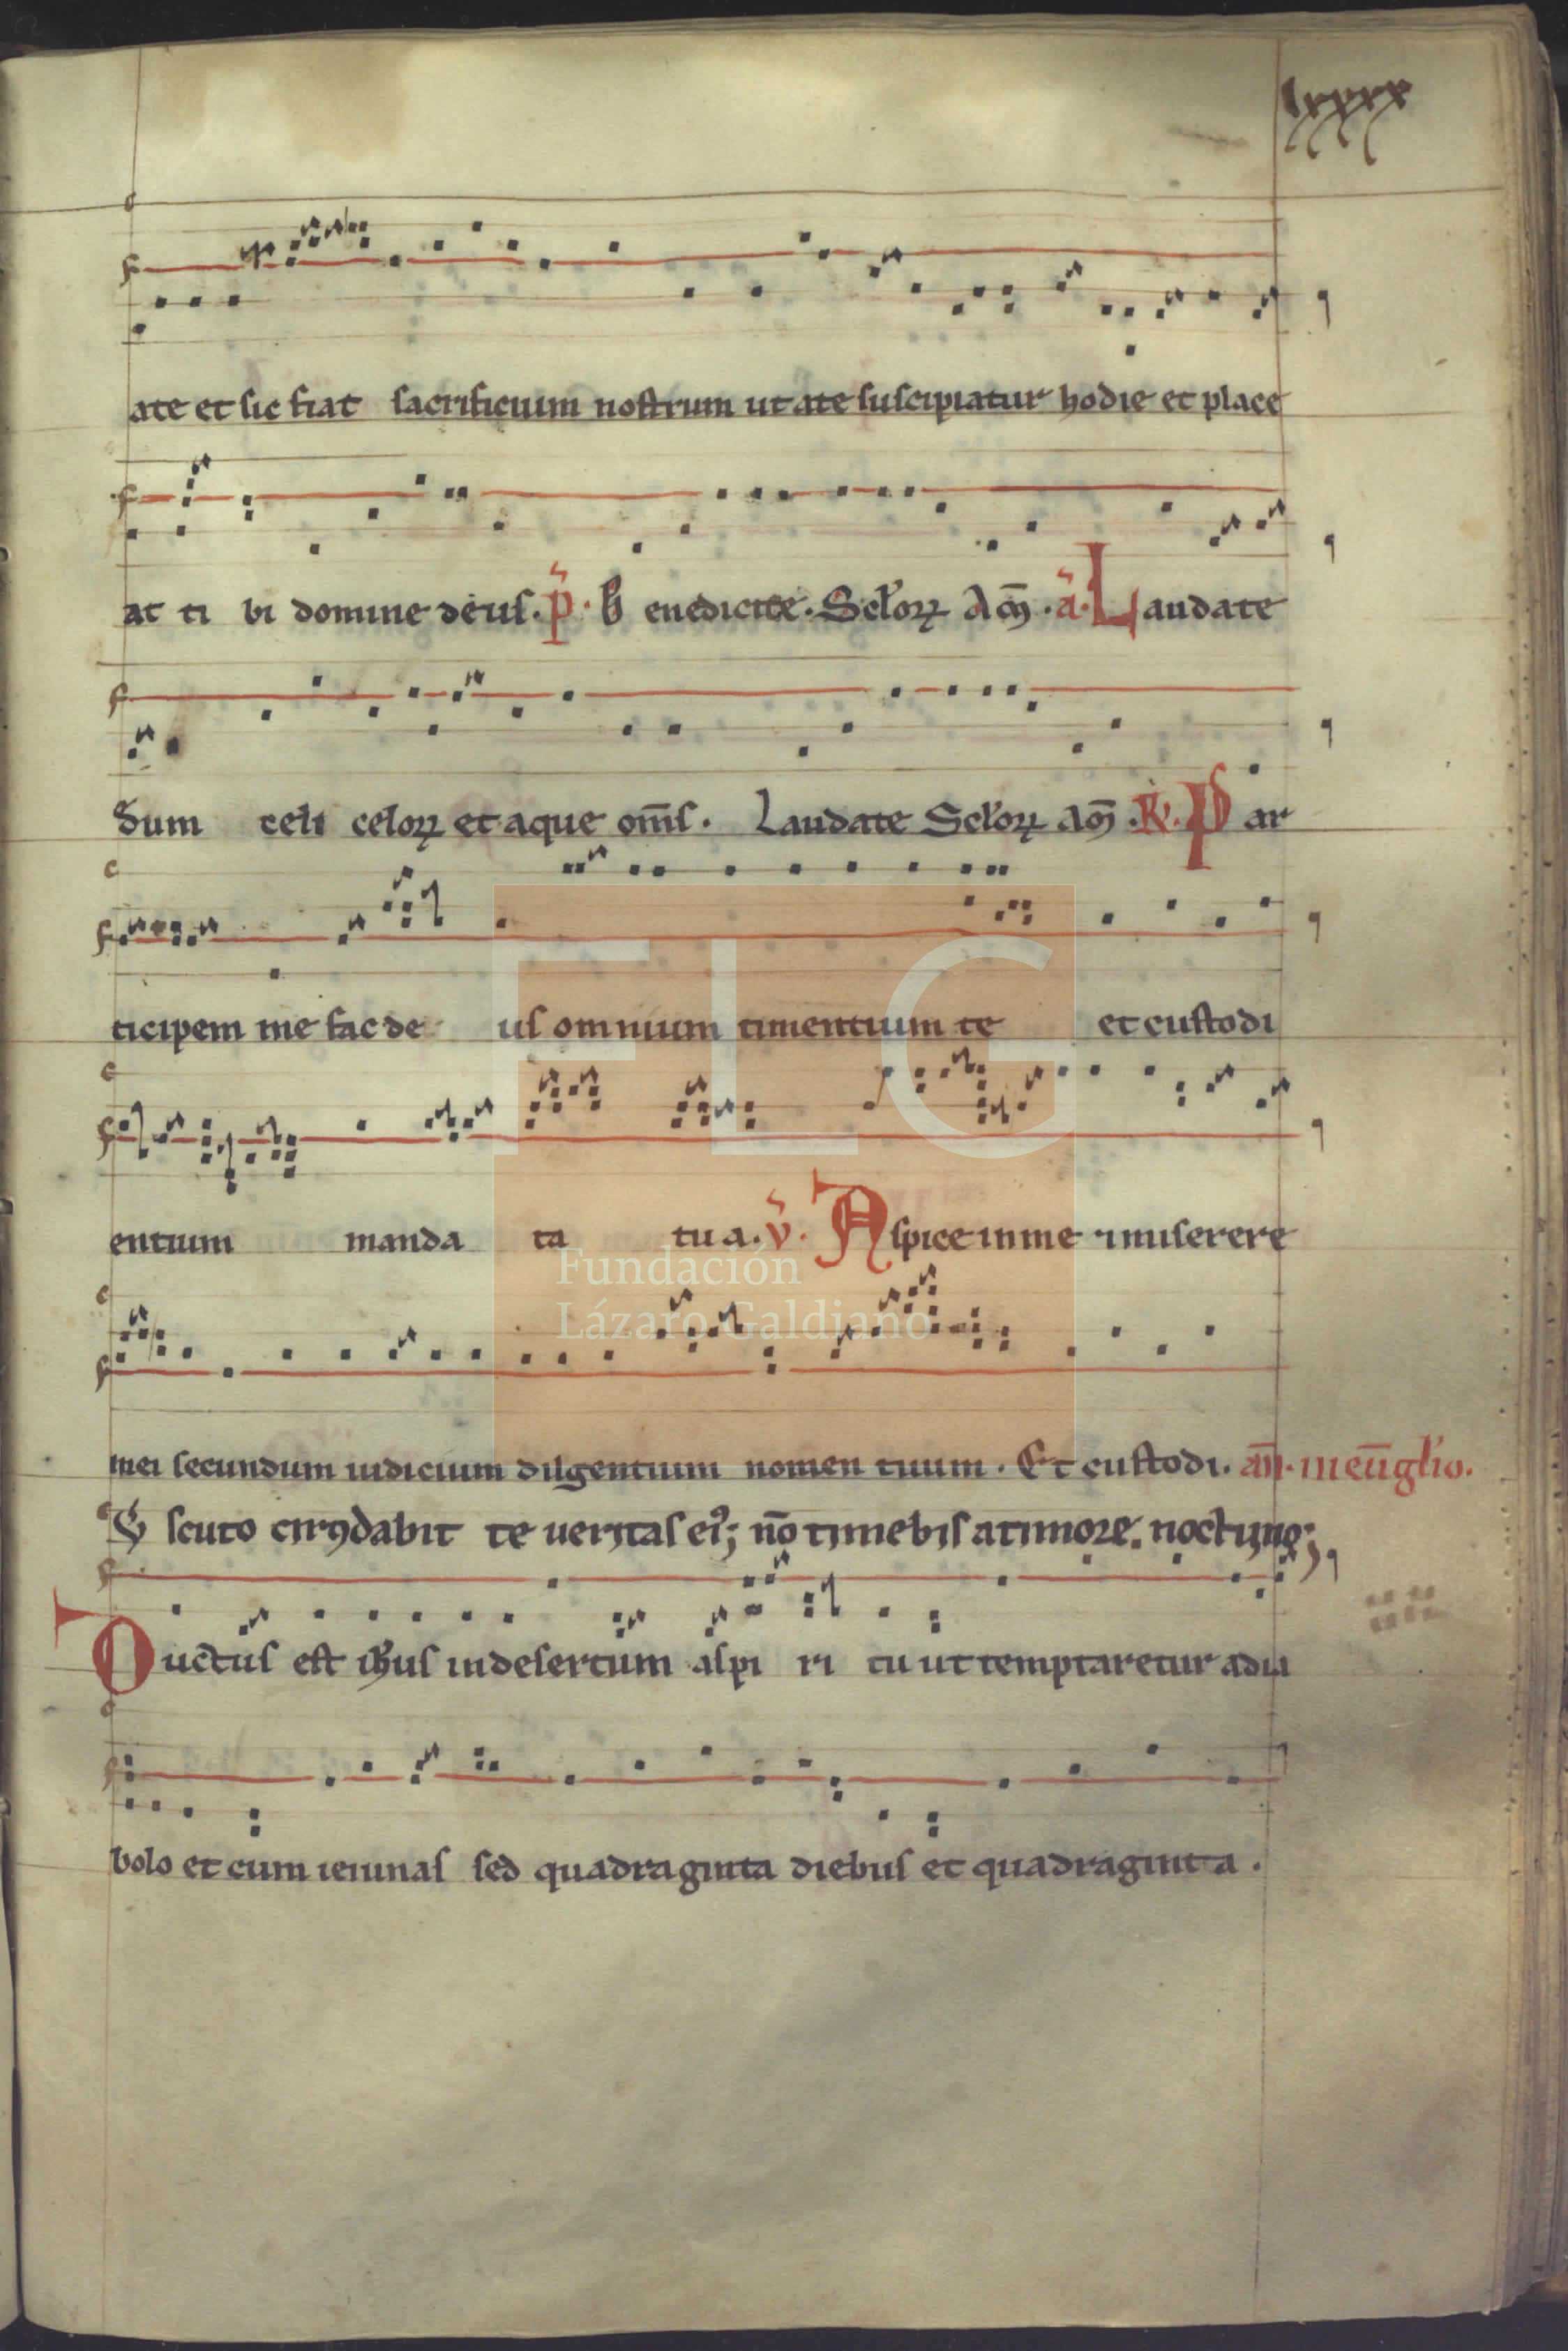 lxxxx
ate et sic fiat sacrificium nostrum ut ate suscipiatur hodie et place
at ti bi domine deus. p̃. B enedicite. Sclorꝝ Am̄. ã. Laudate
dum celi celorꝝ et aque om̄s. Laudate Sclorꝝ Am̄. R̷. Par
ticipem me fac de us omnium timentium te et custodi
entium manda ta tu a. ṽ. Aspice in me miserere
mei secundum iudicium diligentium nomen tuum. Et custodi. añ.
scuto cirꝯdabit te veritas eiꝰ; nō timebis atimore. nocturno;
Ductus est ih̅us indesertum aspi ri tu ut temptaretur adia
bolo et cum ieiunas sed quadraginta diebus et quadraginta.
FLG
Fundación
Lázaro Galdiano